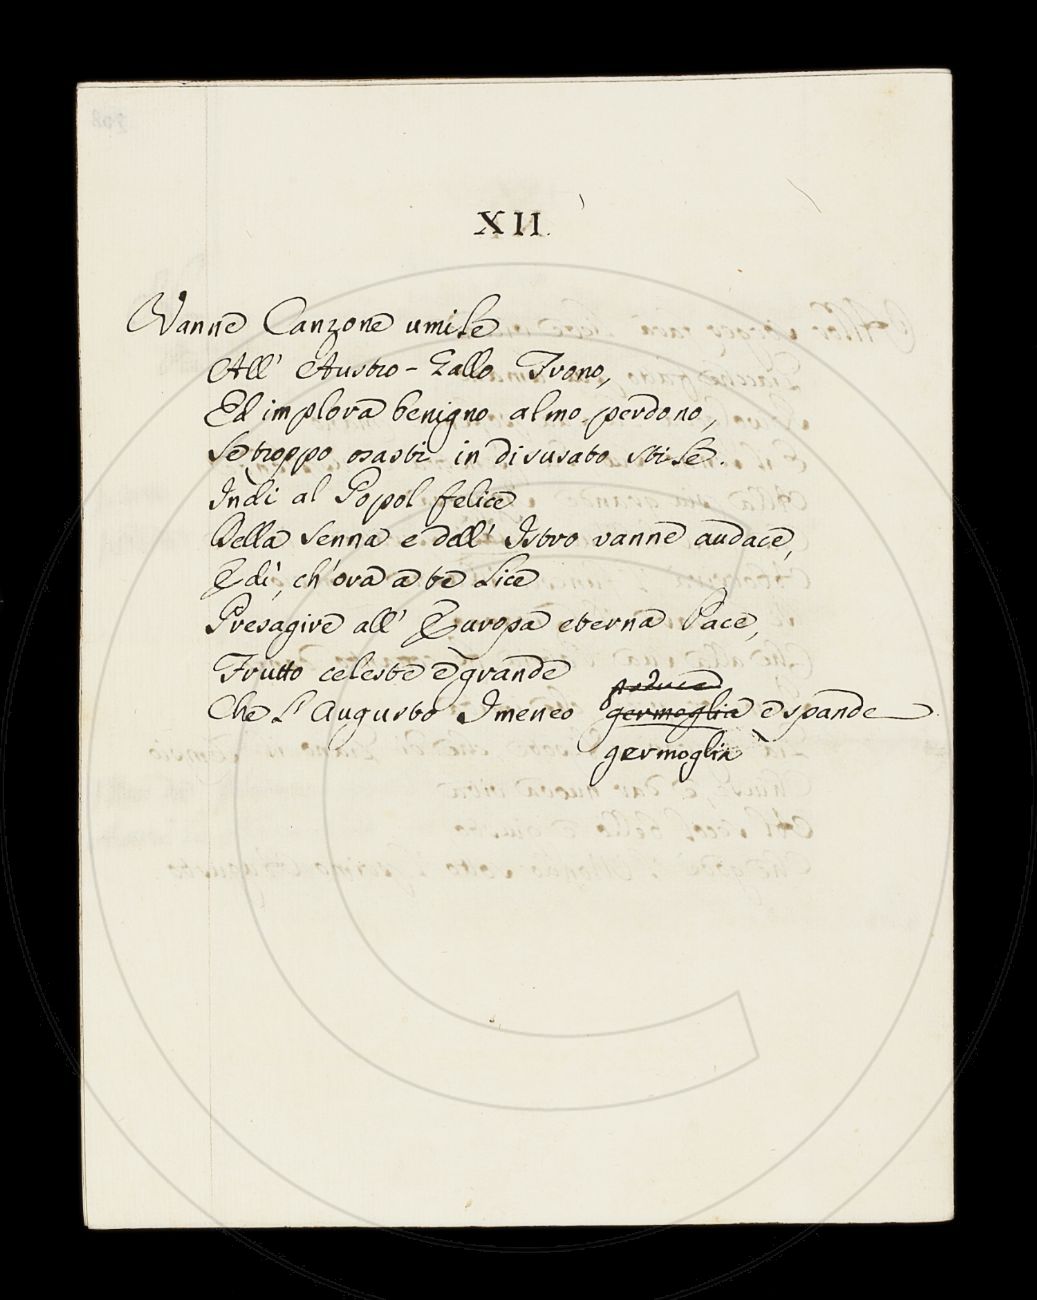 XII.
Vanne Canzone umile
All' Austro-Gallo Trono,
Ed implora benigno almo perdono,
Se troppo osasti in disusato stile.
Indi al Popol felice
Della Senna e dell' Istro vanne audace,
E dì, ch'ora a te lice
Presagire all' Europa eterna Pace,
Frutto celeste e grande
Che l' Augusto Imeneo germoglia e spande
germoglia